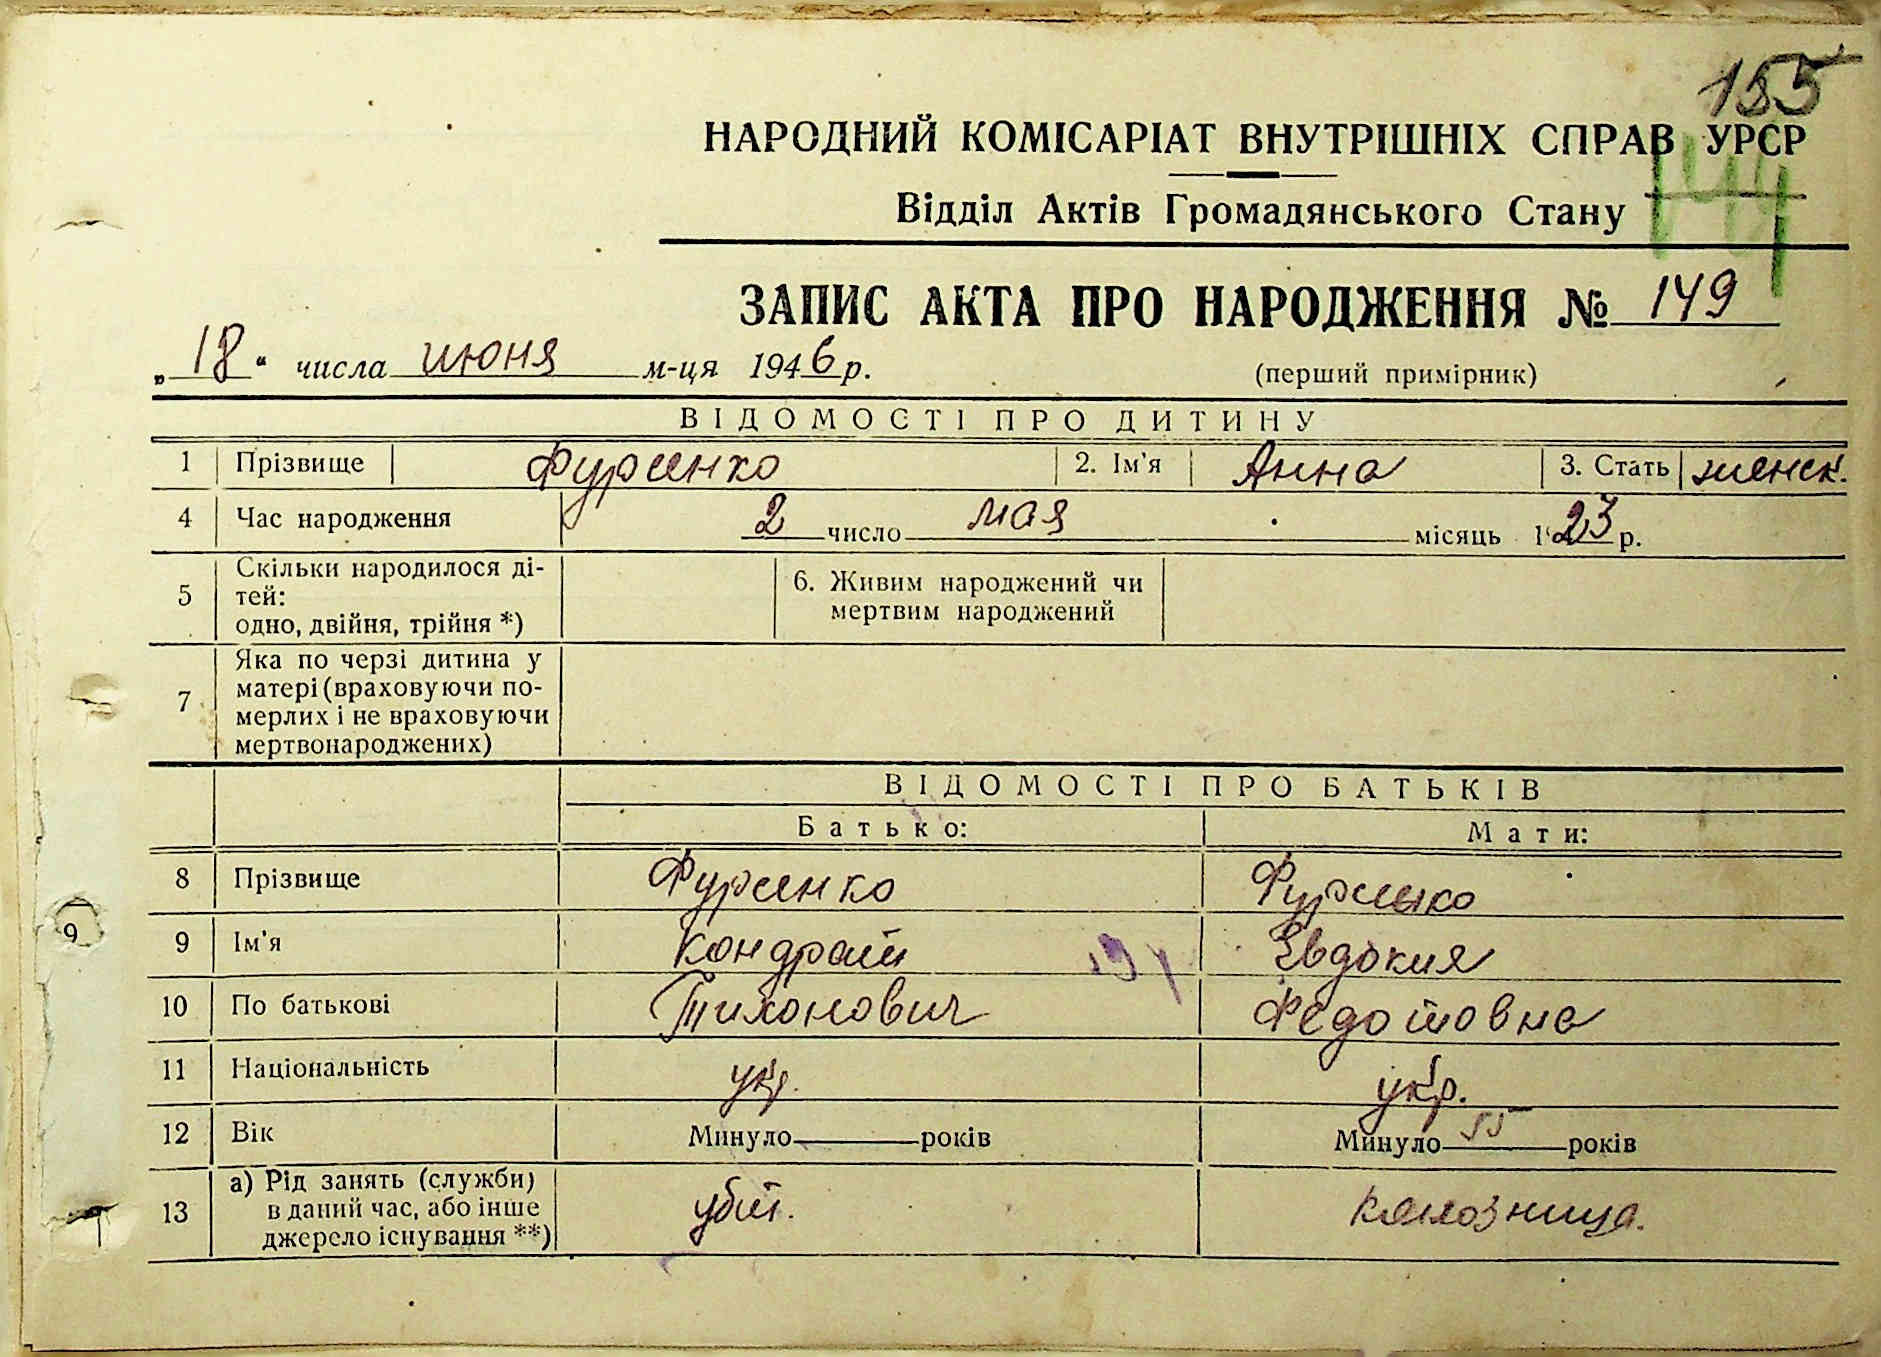 155
НАРОДНИЙ КОМІСАРІАТ ВНУТРІШНІХ СПРАВ УРСР
144
Відділ Актів Громадянського Стану
ЗАПИС АКТА ПРО НАРОДЖЕННЯ № 149
„18“ числа июня м-ця 1946 р.
(перший примірник)
ВІДОМОСТІ ПРО ДИТИНУ
1 Прізвище Фурсенко 2. Ім'я Анна 3. Стать женск.
4 Час народження 2 число мая місяць 1923 р.
5 Скільки народилося ді-
тей:
одно, двійня, трійня *)
6. Живим народжений чи
мертвим народжений
7 Яка по черзі дитина у
матері (враховуючи по-
мерлих і не враховуючи
мертвонароджених)
ВІДОМОСТІ ПРО БАТЬКІВ
Батько: Мати:
8 Прізвище Фурсенко Фурсенко
9 Ім'я Кондрат Евдокия
10 По батькові Тихонович Федотовна
11 Національність укр. укр.
12 Вік Минуло років Минуло 55 років
13 а) Рід занять (служби)
в даний час, або інше
джерело існування **)
убит. колхозница.
9